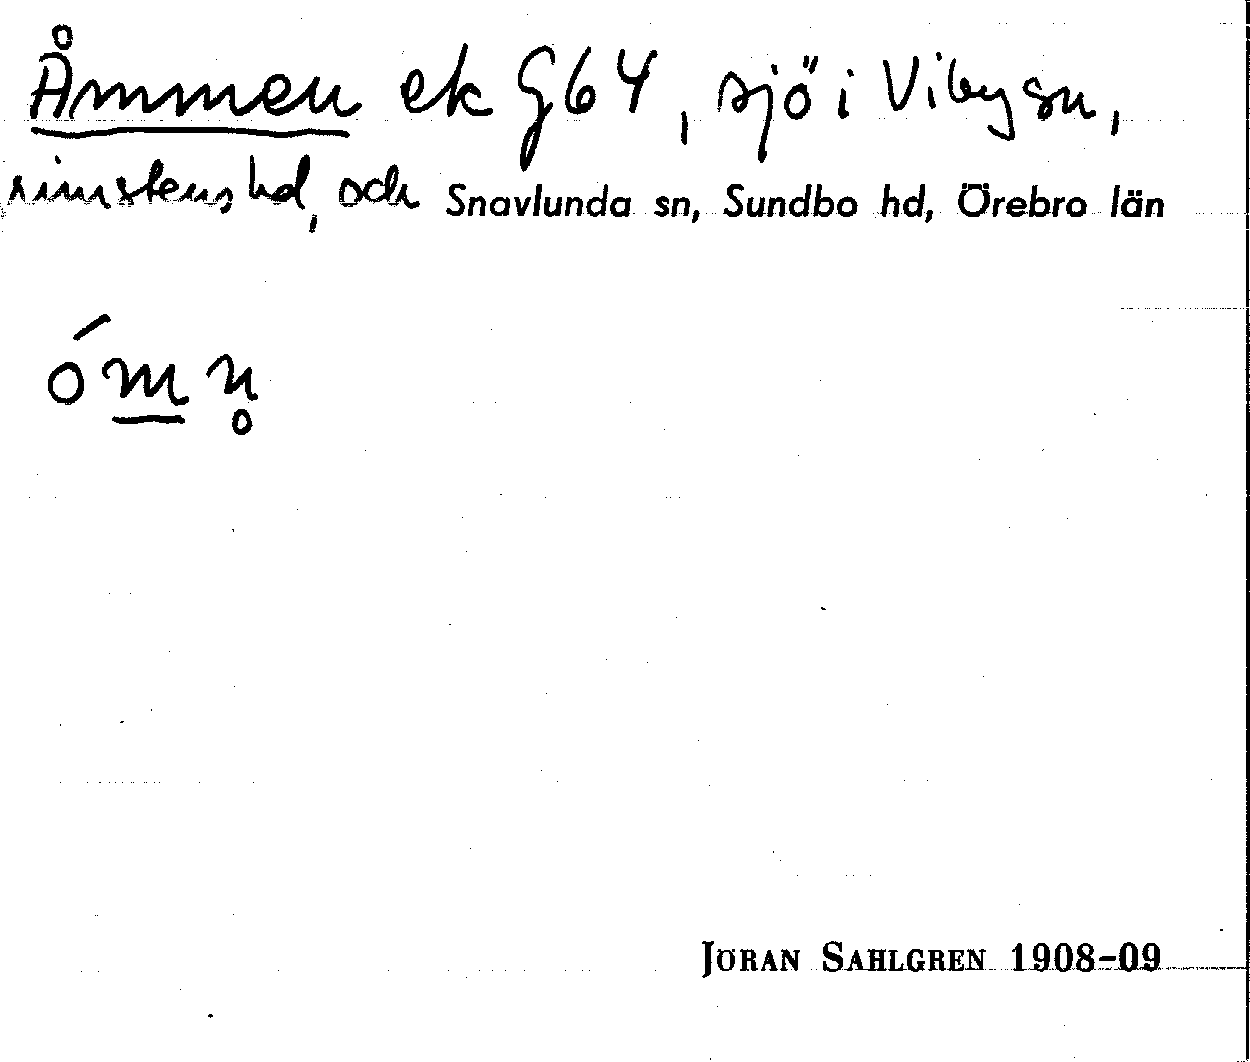 Åmmen ek G64, sjö i Viby sn,
rimstens hd, och Snavlunda sn, Sundbo hd, Örebro län
ómn̥
JÖRAN SAHLGREN 1908-09